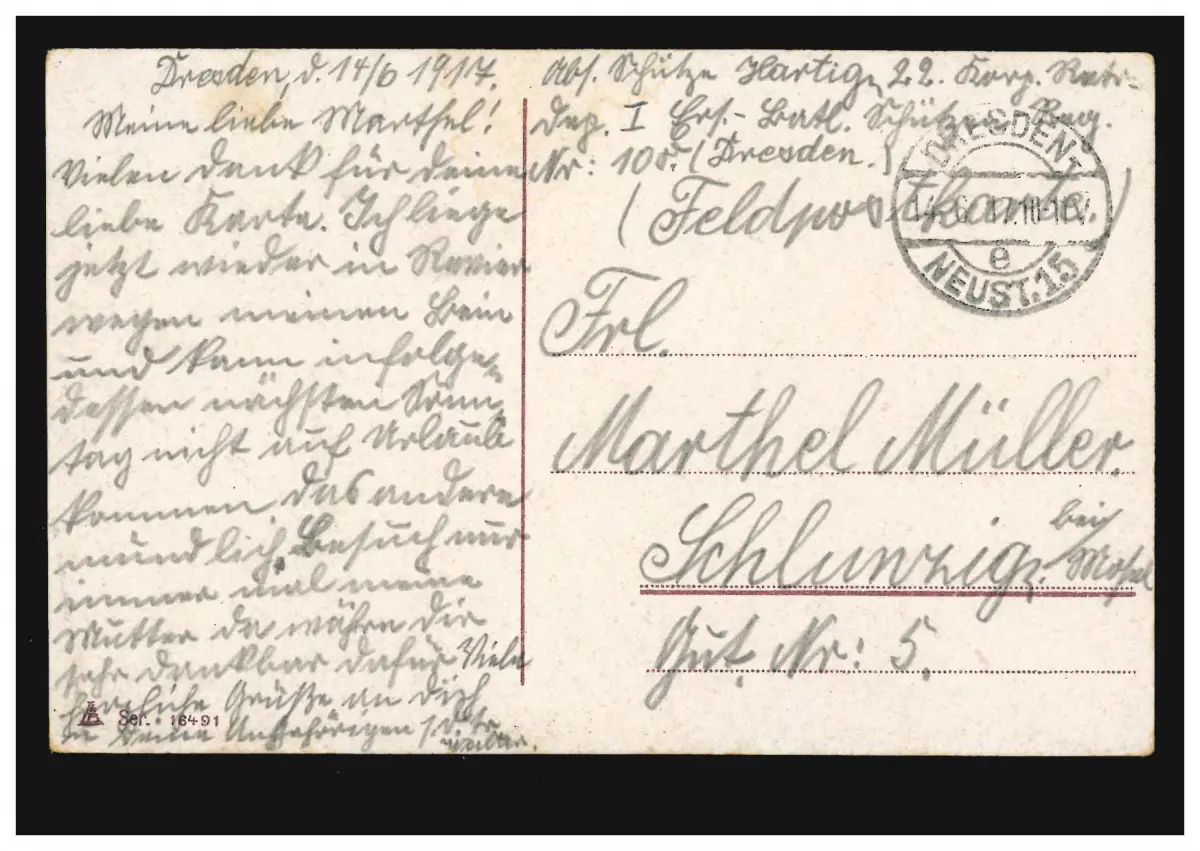 Dresden, d. 14/6 1917.
Meine liebe Marthel!
Vielen Dank für deine
liebe Karte. Ich liege
jetzt wieder in Revier
wegen meinen Bein
und kann infolge-
dessen nächsten Sonn-
tag nicht auf Urlaub
kommen das andere
mündlich Besuch nur
immer mal meine
Mutter da wäre dir
sehr dankbar dafür Viele
herzliche Grüße an Dich
u Deine Angehörigen
Abs. Schütze Hartig, 22. Korp. Rekr.
Dep. I Ers.-Batl. Schützen Reg.
Nr: 108. (Dresden.)
(Feldpostkarte.)
Frl.
Marthel Müller.
Schlunzig. bei Mosel
Gut. Nr: 5.
DRESDEN
14.6.17.
e
NEUST. 15
Ser. 16491